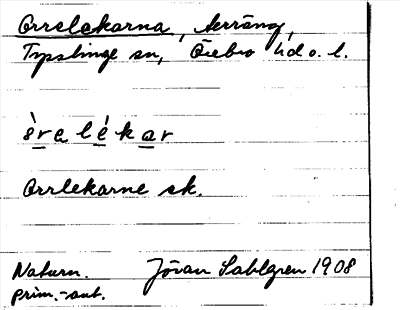 Orrelekarna, terräng,
Tysslinge sn, Örebro hd o. l.
òrelékar
Orrlekarne sk.
Naturn. Jöran Sahlgren 1908
prim.-ant.